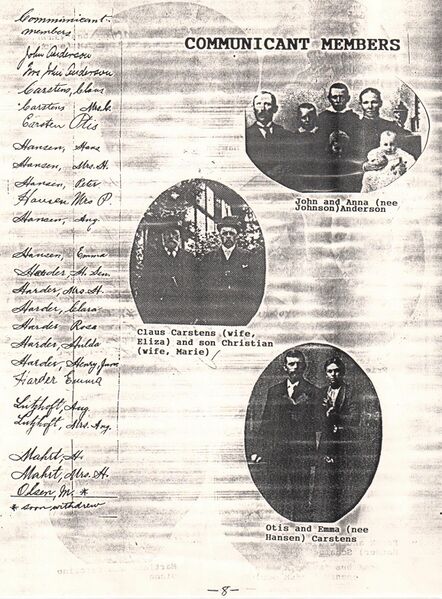 Communicant
members
COMMUNICANT MEMBERS
John Anderson
Mrs John Anderson
Carstens, Claus
Carstens Mrs C.
Carsten Otis
Hansen, Hans
Hansen, Mrs. H.
Hansen, Peter
Hansen Mrs P.
Hansen, Aug.
Hansen, Emma
Harder, H. Sen.
Harder, Mrs. H.
Harder, Clara
Harder Rosa
Harder, Hilda
Harder, Henry, Junr
Harder Emma
Lutzhoft, Aug.
Lutzhoft, Mrs. Aug.
Mahrt, H.
Mahrt, Mrs. H.
Olsen, M. *
* soon withdrew
John and Anna (nee
Johnson)Anderson
Claus Carstens (wife,
Eliza) and son Christian
(wife, Marie)
Otis and Emma (nee
Hansen) Carstens
-8-